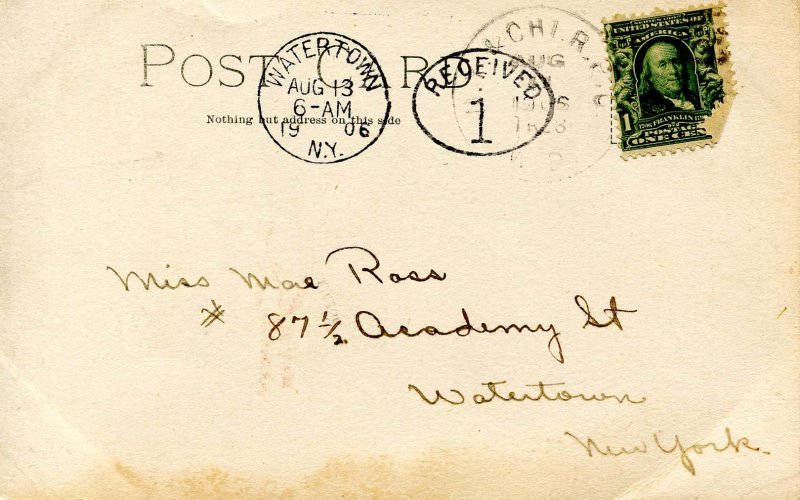 POST CARD
Nothing but address on this side
WATERTOWN
AUG 13
6-AM
19 06
N.Y.
RECEIVED
1
& CHI. R.P.O.
AUG
1906
SERIES 1902
UNITED STATES OF
AMERICA
1706 FRANKLIN 1790
1 POSTAGE
ONE CENT
Miss Mae Ross
# 87 1/2 Academy St
Watertown
New York.